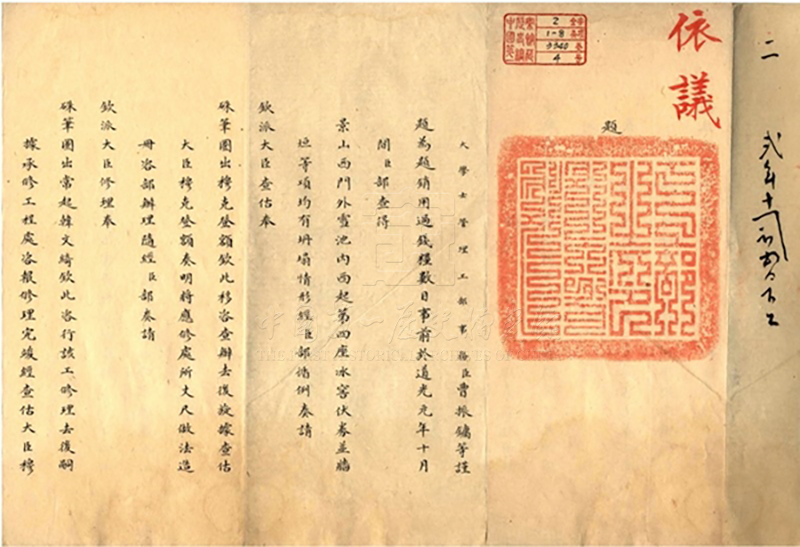 二
依議
2
1-8
3340
4
題
大學士管理工部事務臣曹振鏞等謹
題為題銷用過錢糧數目事前於道光元年十月
間臣部查得
景山西門外雪池內西起第四座冰窖伏券並牆
垣等項均有坍塌情形經臣部循例奏請
欽派大臣查估奉
硃筆圈出穆克登額欽此移咨查辦去後旋據查估
大臣穆克登額奏明將應修處所丈尺做法造
冊咨部辦理隨經臣部奏請
欽派大臣修理奉
硃筆圈出常起韓文綺欽此咨行該工修理去後嗣
據承修工程處咨報修理完竣經查估大臣穆